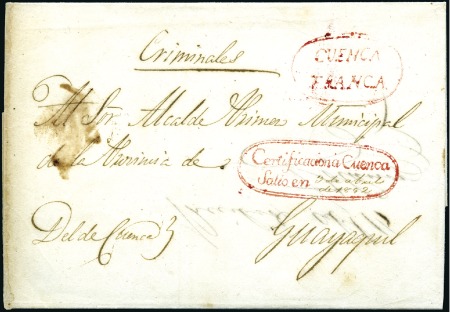 Criminales
CUENCA
FRANCA
Al Sor. Alcalde Primer Municipal
de la Provincia de
Certificacion a Cuenca
Salió en 3 de abril
de 18
Del de Cuenca
Guayaquil